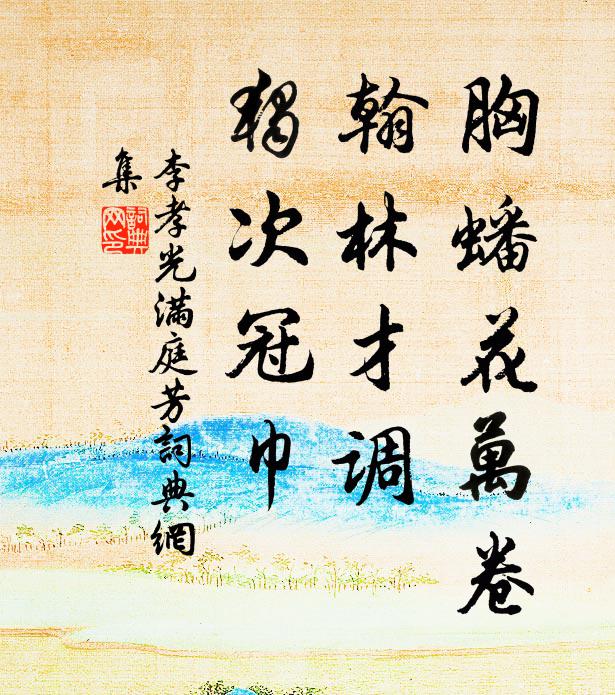 胸蟠花萬卷
翰林才调
獨次冠巾
李孝光滿庭芳詞典網
集
詞典
网印